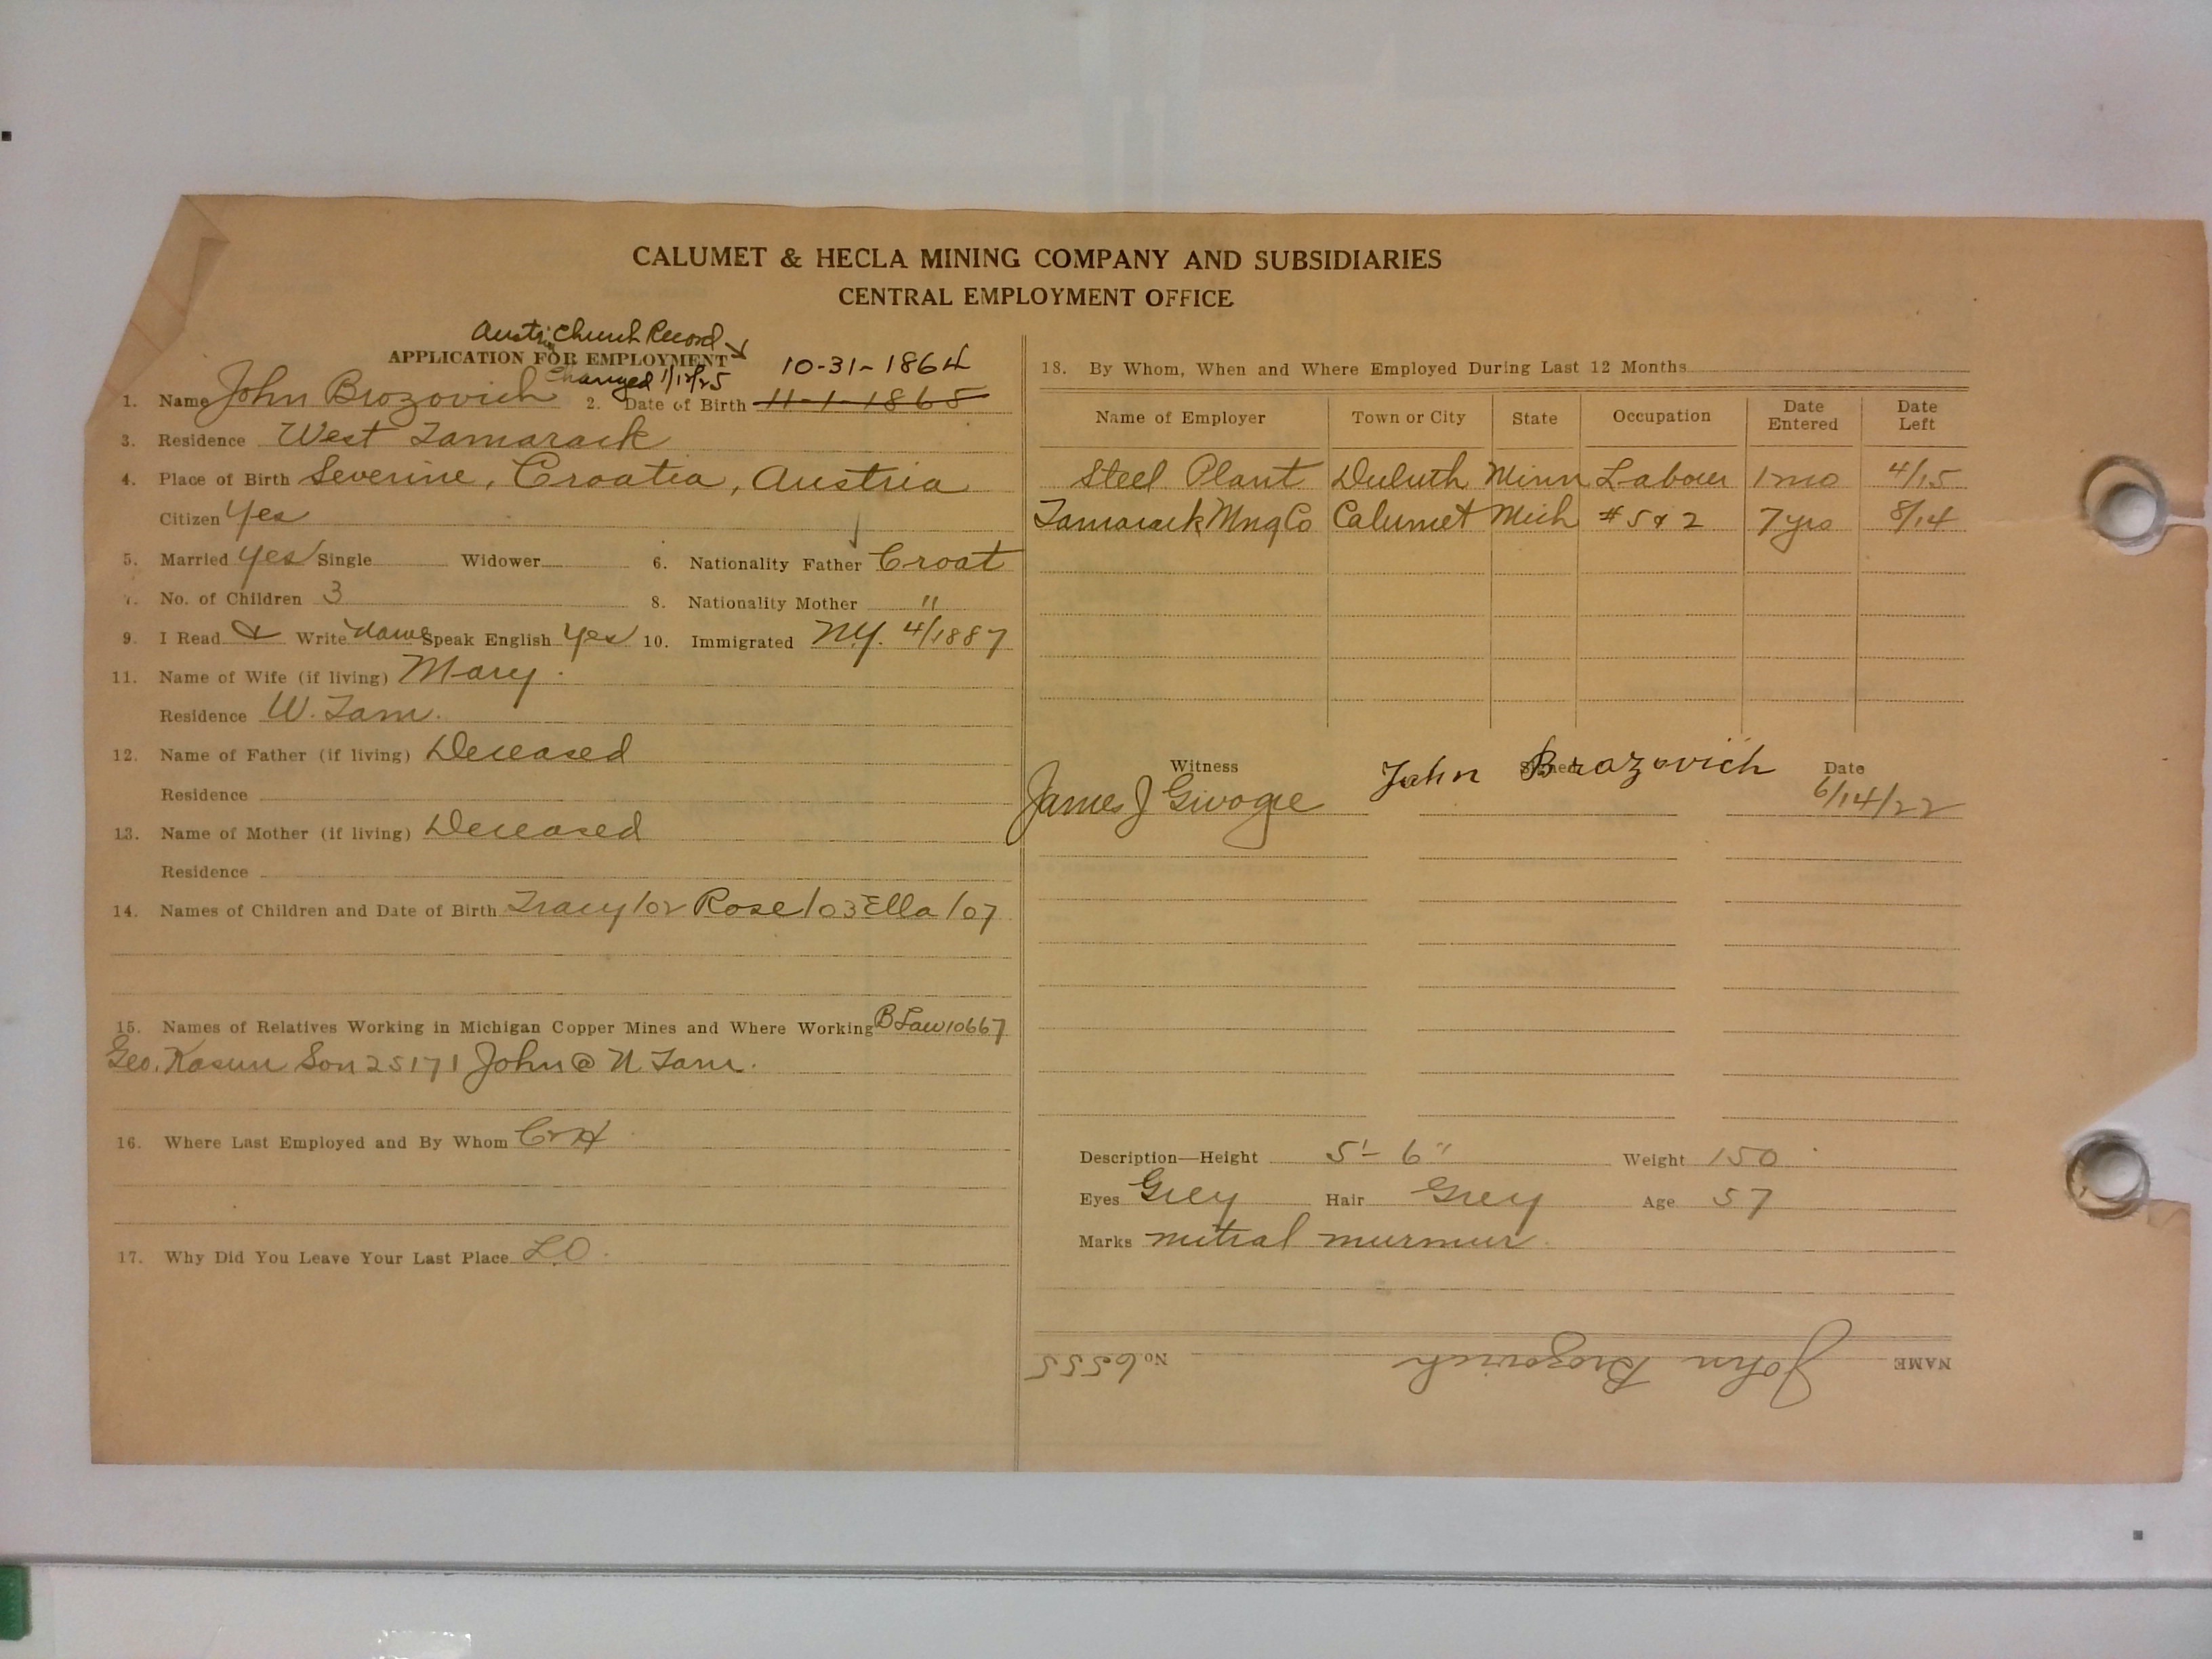 CALUMET & HECLA MINING COMPANY AND SUBSIDIARIES
CENTRAL EMPLOYMENT OFFICE
Church Record
APPLICATION FOR EMPLOYMENT 10-31-1864
Changed 1/12/25
1. Name John Brozovich 2. Date of Birth 11-1-1865
3. Residence West Tamarack
4. Place of Birth Severine, Croatia, Austria
Citizen Yes
5. Married yes Single Widower 6. Nationality Father Croat
7. No. of Children 3 8. Nationality Mother "
9. I Read & Write Name Speak English Yes 10. Immigrated N.Y. 4/1887
11. Name of Wife (if living) Mary.
Residence W. Tam.
12. Name of Father (if living) Deceased
Residence
13. Name of Mother (if living) Deceased
Residence
14. Names of Children and Date of Birth Tracy/02 Rose/03 Ella/07
15. Names of Relatives Working in Michigan Copper Mines and Where Working B Law 10667
Geo. Kasun Son 25171 John @ N Tam.
16. Where Last Employed and By Whom C&H
17. Why Did You Leave Your Last Place L.O.
18. By Whom, When and Where Employed During Last 12 Months
Name of Employer Town or City State Occupation Date Entered Date Left
Steel Plant Duluth Minn Labour 1 mo 4/15
Tamarack Mng Co Calumet Mich # 5 & 2 7 yrs 8/14
Witness Signed Date
James J John Brozovich 6/14/22
Description—Height 5'- 6" Weight 150
Eyes Grey Hair Grey Age 57
Marks mitral murmur.
NAME John Brozovich No. 6555